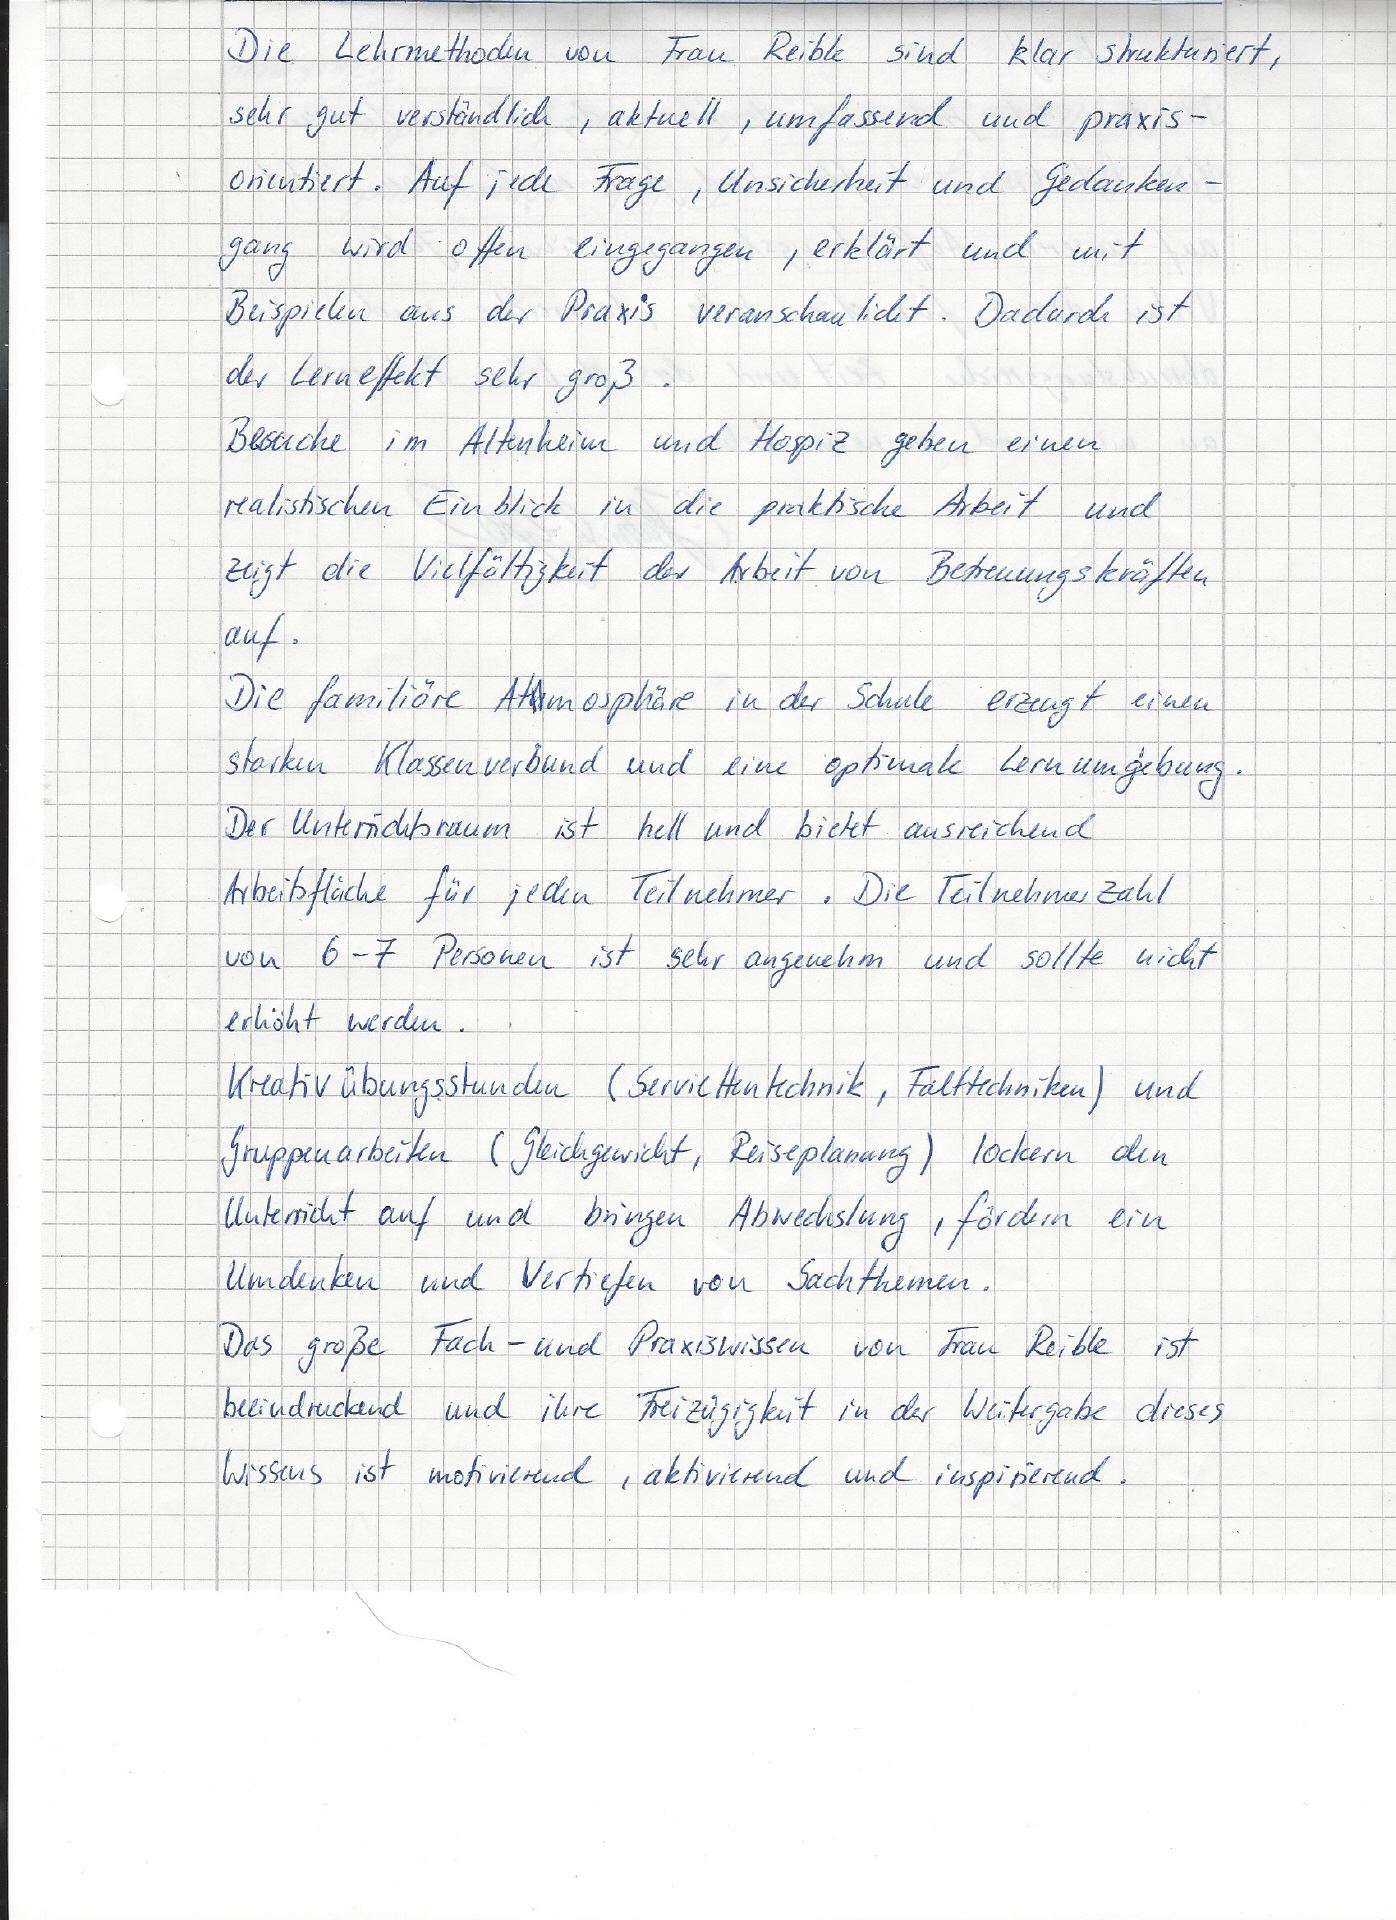 Die Lehrmethoden von Frau Reible sind klar strukturiert,
sehr gut verständlich, aktuell, umfassend und praxis-
orientiert. Auf jede Frage, Unsicherheit und Gedanken-
gang wird offen eingegangen, erklärt und mit
Beispielen aus der Praxis veranschaulicht. Dadurch ist
der Lerneffekt sehr groß.
Besuche im Altenheim und Hospiz geben einen
realistischen Einblick in die praktische Arbeit und
zeigt die Vielfältigkeit der Arbeit von Betreuungskräften
auf.
Die familiäre Atmosphäre in der Schule erzeugt einen
starken Klassenverbund und eine optimale Lernumgebung.
Der Unterrichtsraum ist hell und bietet ausreichend
Arbeitsfläche für jeden Teilnehmer. Die Teilnehmerzahl
von 6-7 Personen ist sehr angenehm und sollte nicht
erhöht werden.
Kreativübungsstunden (Serviettentechnik, Falttechniken) und
Gruppenarbeiten (Gleichgewicht, Reiseplanung) lockern den
Unterricht auf und bringen Abwechslung, fördern ein
Umdenken und Vertiefen von Sachthemen.
Das große Fach- und Praxiswissen von Frau Reible ist
beeindruckend und ihre Freizügigkeit in der Weitergabe dieses
Wissens ist motivierend, aktivierend und inspirierend.